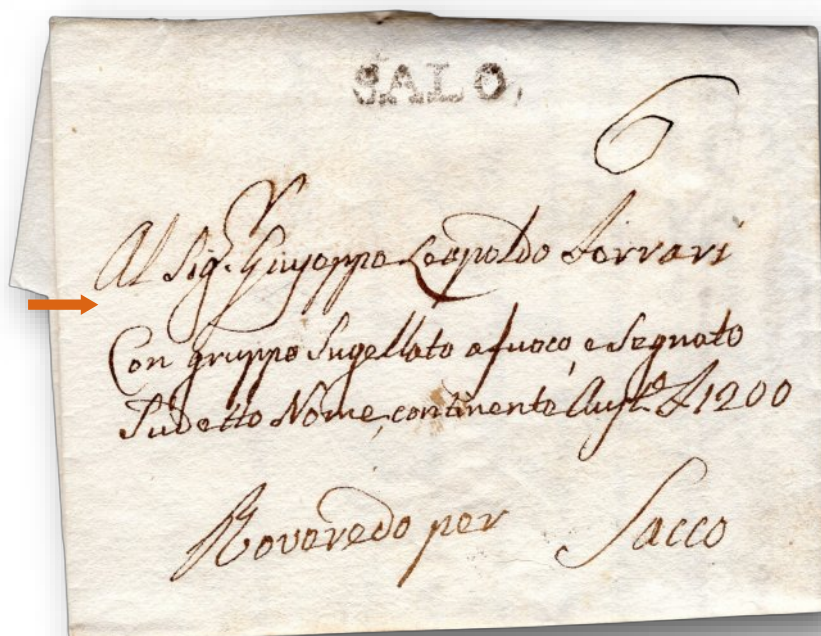 SALO,
6
Al Sig.r Giuseppe Leopoldo Ferrari
Con gruppo Sugellato a fuoco, e Segnato
Sudetto Nome, continente £ 1200
Roveredo per Sacco